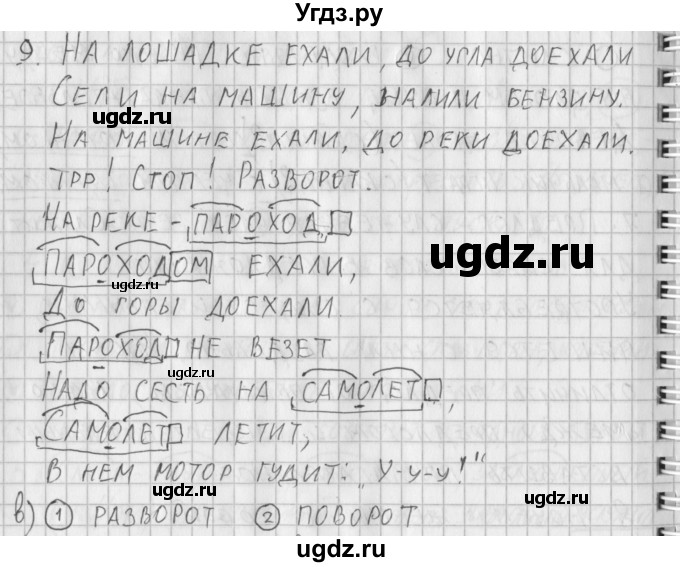 Угдз.ру
9. НА ЛОШАДКЕ ЕХАЛИ, ДО УГЛА ДОЕХАЛИ
СЕЛИ НА МАШИНУ, НАЛИЛИ БЕНЗИНУ.
НА МАШИНЕ ЕХАЛИ, ДО РЕКИ ДОЕХАЛИ.
ТРР! СТОП! РАЗВОРОТ.
НА РЕКЕ - ПАРОХОД
ugdz.ru
ugdz.ru
ПАРОХОДОМ ЕХАЛИ,
ugdz.ru
ДО ГОРЫ ДОЕХАЛИ.
ugdz.ru
ПАРОХОД НЕ ВЕЗЕТ
ugdz.ru
НАДО СЕСТЬ НА САМОЛЕТ,
САМОЛЕТ ЛЕТИТ,
ugdz.ru
В НЕМ МОТОР ГУДИТ: „У-у-у!"
в) 1 РАЗВОРОТ 2 ПОВОРОТ
ugdz.ru